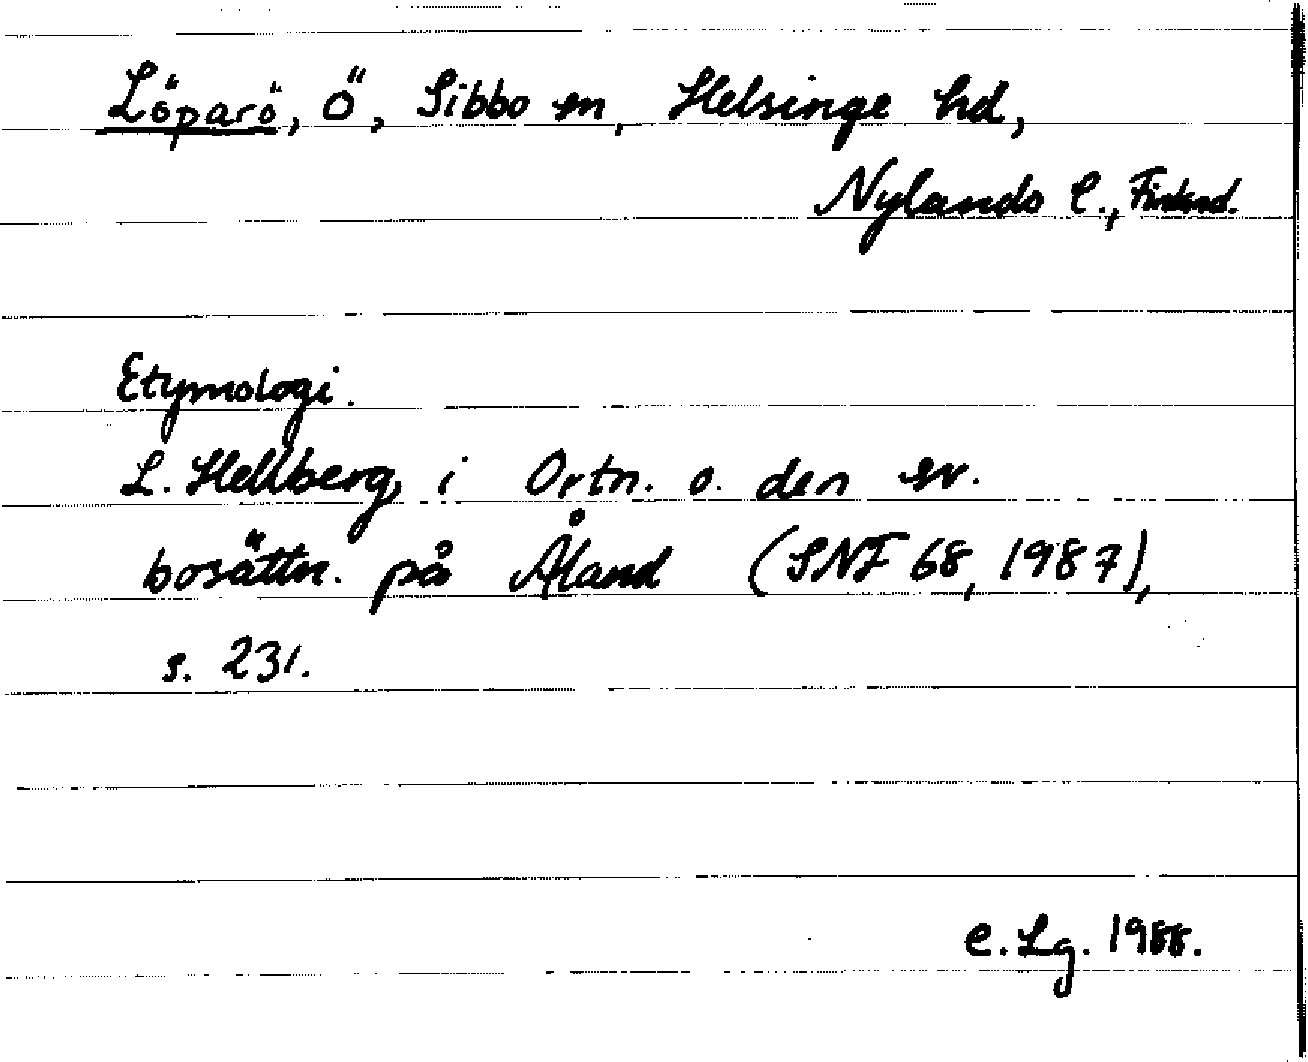 Löparö, Ö, Sibbo sn, Helsinge hd,
Nylands l., Finland.
Etymologi.
L. Hellberg, i Ortn. o. den sv.
bosättn. på Åland (SNF 68, 1987),
s. 231.
C. Lg. 1988.